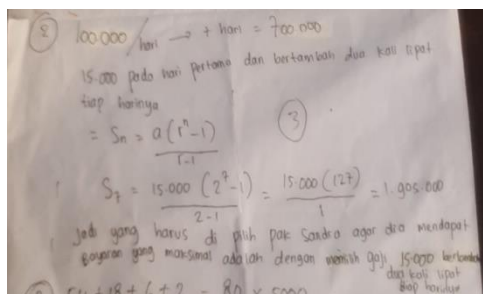 ② 100.000/hari → 7 hari = 700 000
15.000 pada hari pertama dan bertambah dua kali lipat
tiap harinya
= Sn = a(r^n-1)/r-1
③
S7 = 15.000 (2^7-1)/2-1 = 15.000 (127)/1 = 1.905.000
Jadi yang harus di pilih pak Sandra agar dia mendapat
bayaran yang maksimal adalah dengan memilih gaji 15.000 bertambah
dua kali lipat
tiap harinya